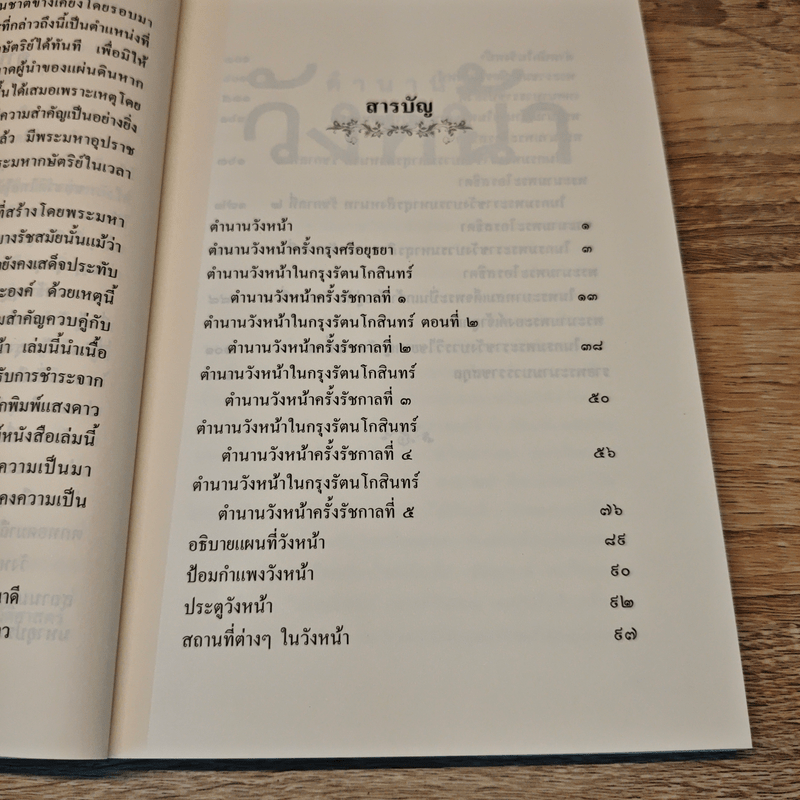 นชาติข้างเคียงโดยรอบมา
ที่กล่าวถึงนี้เป็นตำแหน่งที่
กษัตริย์ได้ทันที เพื่อมิให้
ผู้นำของแผ่นดินหาก
ได้เสมอเพราะเหตุโดย
ความสำคัญเป็นอย่างยิ่ง
ล้ว มีพระมหาอุปราช
ระมหากษัตริย์ในเวลา
ที่สร้างโดยพระมหา
บางรัชสมัยนั้นแม้ว่า
ยังคงเสด็จประทับ
ะองค์ ด้วยเหตุนี้
มสำคัญควบคู่กับ
เล่มนี้นำเนื้อ
รับการชำระจาก
กพิมพ์แสงดาว
์หนังสือเล่มนี้
ความเป็นมา
คงความเป็น
าดี
าว
สารบัญ
ตำนานวังหน้า ๑
ตำนานวังหน้าครั้งกรุงศรีอยุธยา ๓
ตำนานวังหน้าในกรุงรัตนโกสินทร์
ตำนานวังหน้าครั้งรัชกาลที่ ๑ ๑๓
ตำนานวังหน้าในกรุงรัตนโกสินทร์ ตอนที่ ๒
ตำนานวังหน้าครั้งรัชกาลที่ ๒ ๓๘
ตำนานวังหน้าในกรุงรัตนโกสินทร์
ตำนานวังหน้าครั้งรัชกาลที่ ๓ ๕๐
ตำนานวังหน้าในกรุงรัตนโกสินทร์
ตำนานวังหน้าครั้งรัชกาลที่ ๔ ๕๖
ตำนานวังหน้าในกรุงรัตนโกสินทร์
ตำนานวังหน้าครั้งรัชกาลที่ ๕ ๗๖
อธิบายแผนที่วังหน้า ๘๙
ป้อมกำแพงวังหน้า ๙๐
ประตูวังหน้า ๙๒
สถานที่ต่างๆ ในวังหน้า ๙๗